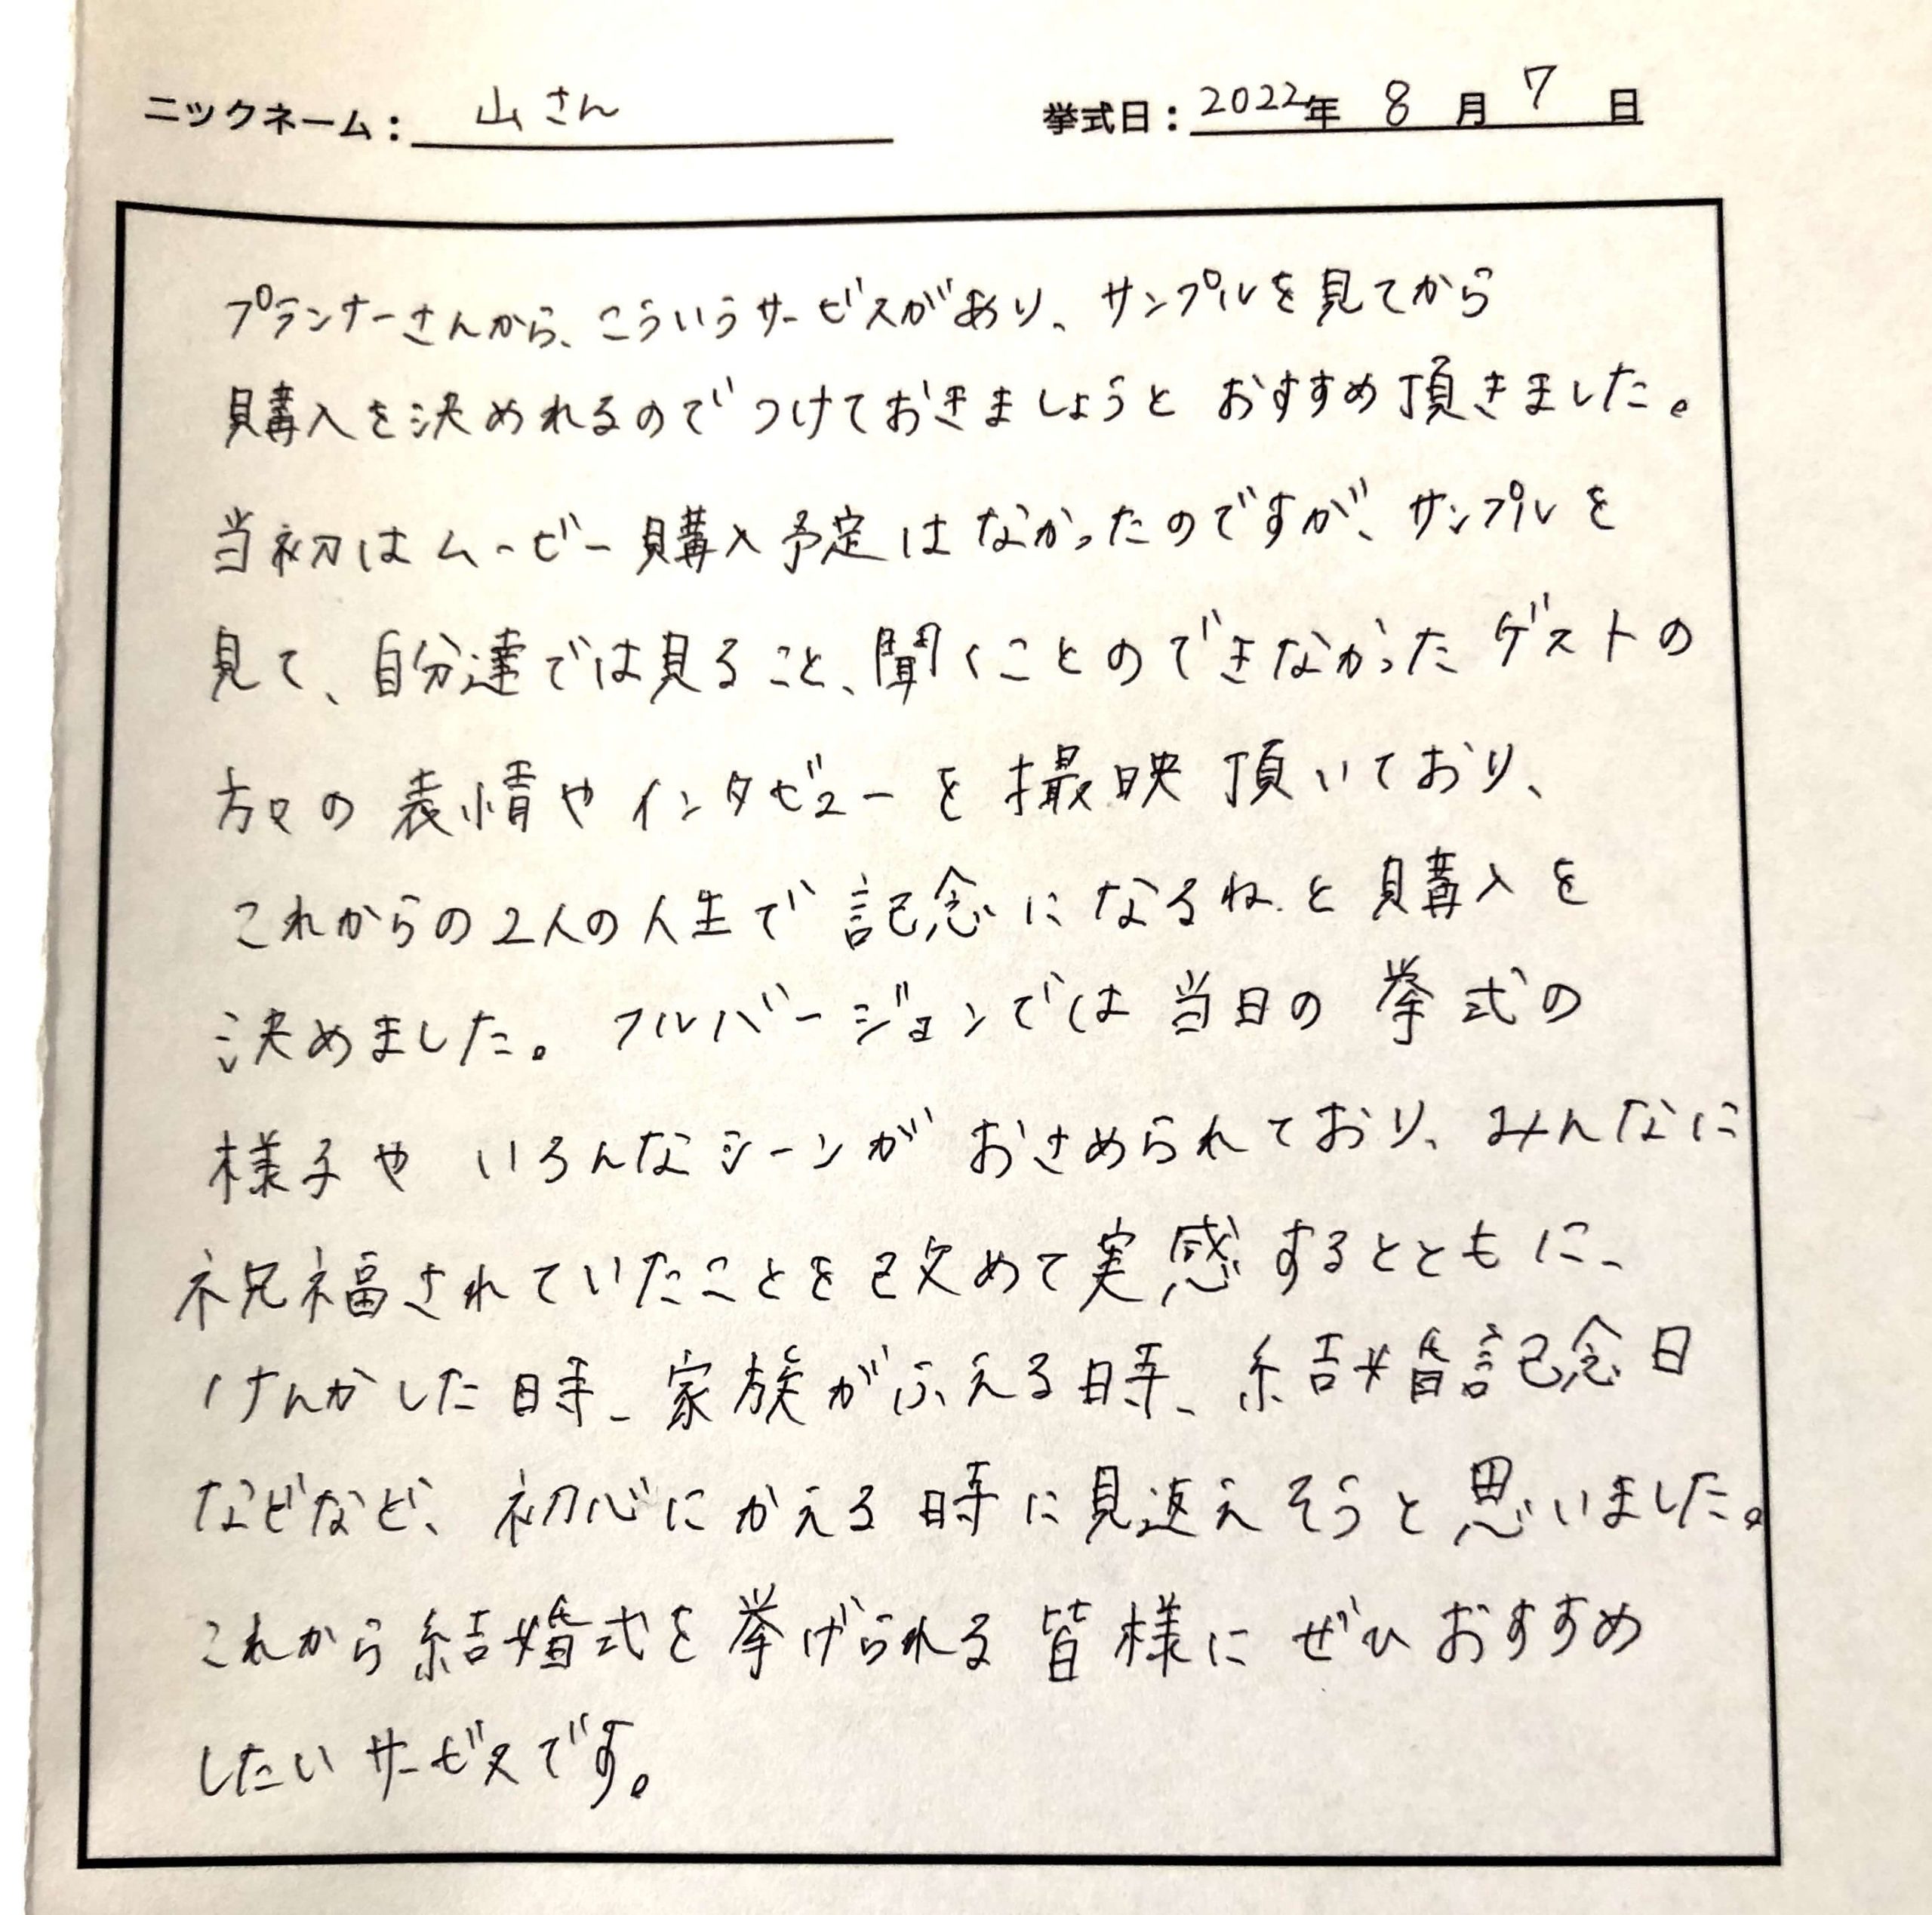 ニックネーム： 山さん 挙式日：2022年 8月7日
プランナーさんから、こういうサービスがあり、サンプルを見てから
購入を決めれるのでつけておきましょうと おすすめ頂きました。
当初はムービー購入予定はなかったのですが、サンプルを
見て、自分達では見ること、聞くことのできなかったゲストの
方々の表情やインタビューを撮映頂いており、
これからの2人の人生で記念になるねと購入を
決めました。フルバージョンでは当日の挙式の
様子や いろんなシーンが おさめられており、みんなに
祝福されていたことを改めて実感するとともに、
けんかした時、家族がふえる時、結婚記念日
などなど、初心にかえる時に見返えそうと思いました。
これから結婚式を挙げられる皆様にぜひおすすめ
したいサービスです。